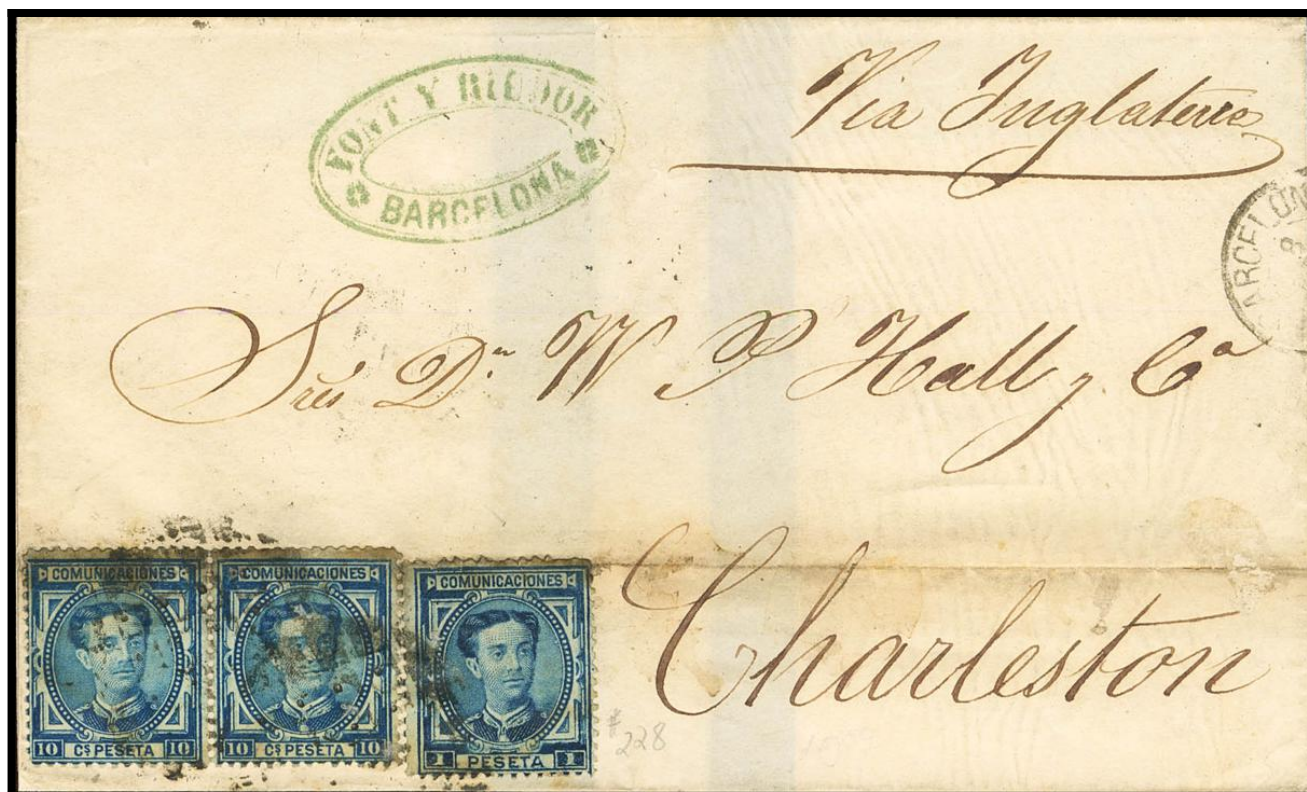 FONT Y RIUDOR
BARCELONA
Via Inglaterra
BARCELON
8
Sres Dn W P Hall y Ca
Charleston
COMUNICACIONES
10 Cs PESETA 10
COMUNICACIONES
10 Cs PESETA 10
COMUNICACIONES
1 PESETA 1
#228